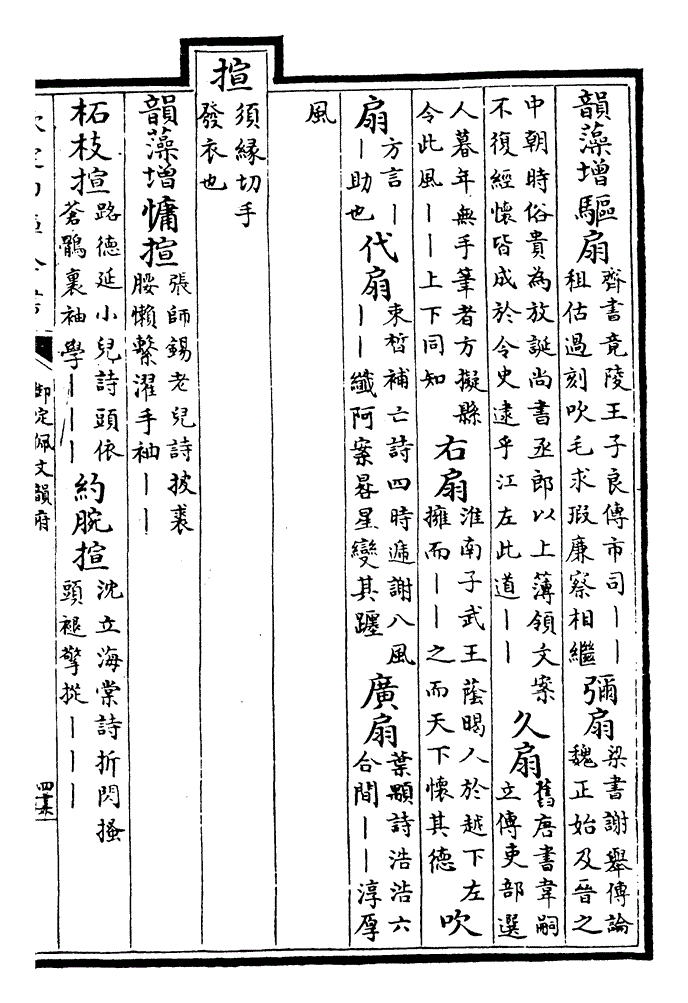 韻藻增驅扇齊書竟陵王子良傳市司——租估過刻吹毛求瑕廉察相繼彌扇梁書謝舉傳論魏正始及晉之
中朝時俗貴為放誕尚書丞郎以上薄領文案不復經懷皆成於令史逮乎江左此道——久扇舊唐書韋嗣立傳吏部選
人暮年無手筆者方擬縣令此風——上下同知右扇淮南子武王蔭暍人於越下左擁而——之而天下懷其德吹
扇方言——助也代扇束晳補亡詩四時遞謝八風——纖阿案晷星變其躔廣扇葉顒詩浩浩六合間——淳厚
風
揎須緣切手發衣也
韻藻增慵揎張師錫老兒詩披裘腰懶繫濯手袖——
柘枝揎路德延小兒詩頭依蒼鶻裹袖學———約腕揎沈立海棠詩折閃搔頭褪擎———
御定佩文韻府